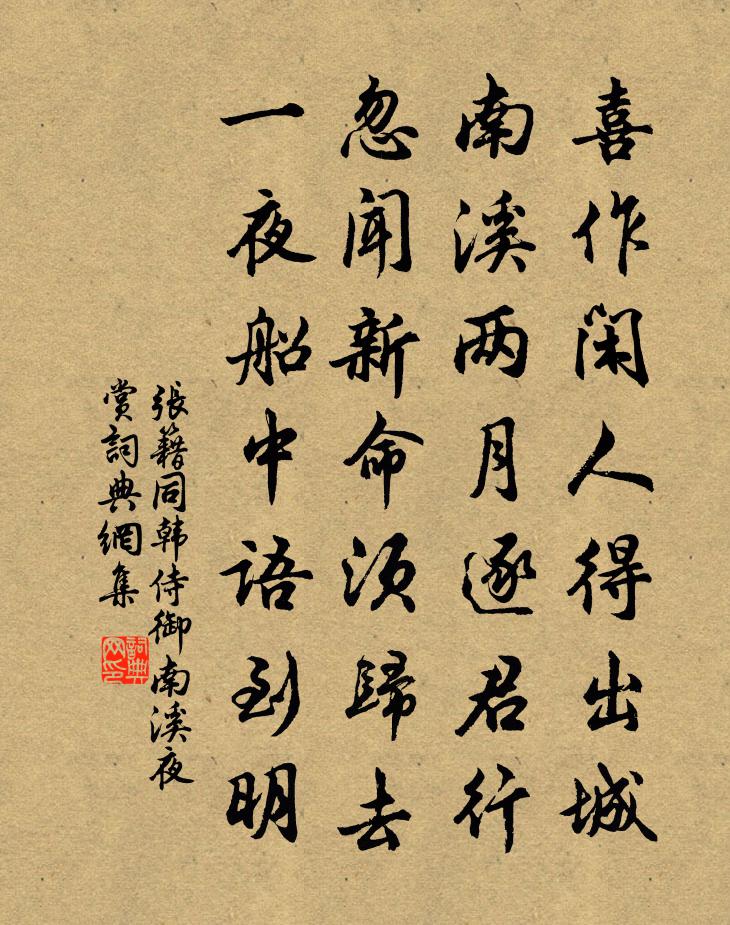 喜作闲人得出城
南溪两月逐君行
忽闻新命须歸去
一夜船中語到明
張籍同韩侍御南溪夜
賞詞典網集
詞典
网印